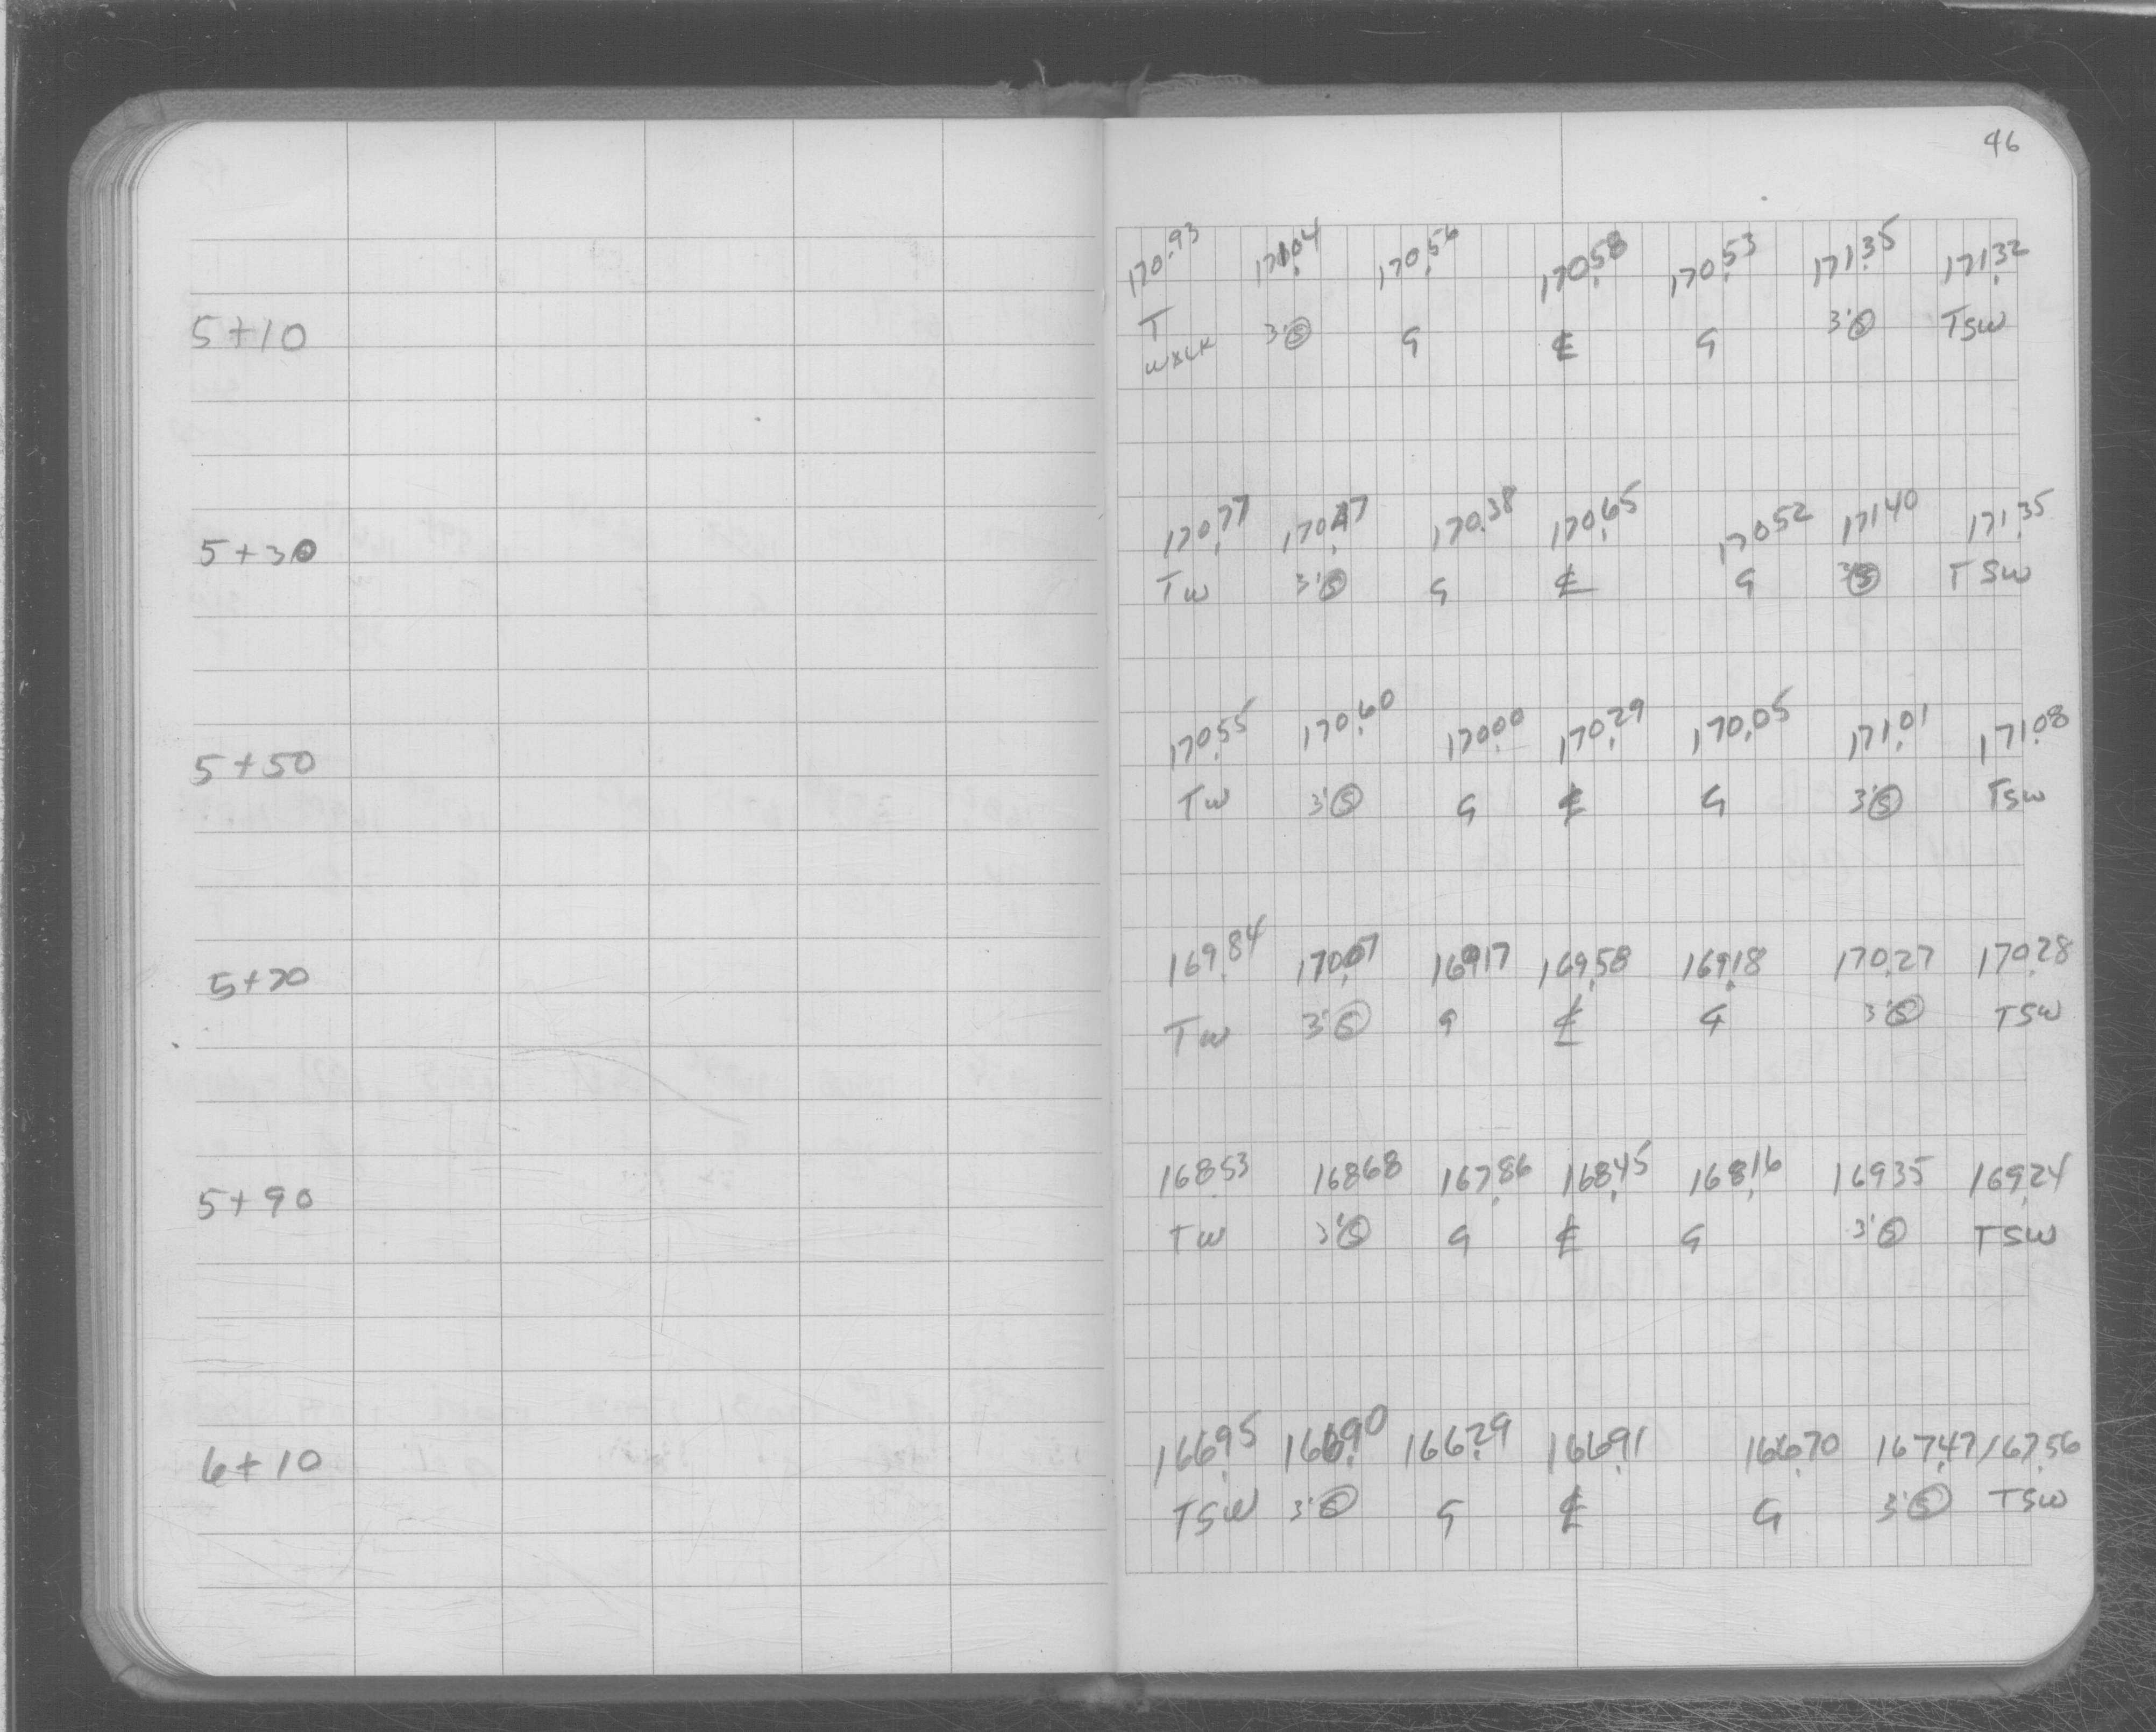 46
170.93 171.04 170.56 170.58 170.53 171.35 171.32
5+10 T WALK 3'Ⓢ G ℄ G 3'Ⓢ TSW
170.77 170.47 170.38 170.65 170.52 171.40 171.35
5+30 TW 3'Ⓢ G ℄ G 3'Ⓢ TSW
170.55 170.60 170.00 170.29 170.05 171.01 171.08
5+50 TW 3'Ⓢ G ℄ G 3'Ⓢ TSW
169.84 169.17 169.58 169.18 170.27 170.28
5+70 TW 3'Ⓢ G ℄ G 3'Ⓢ TSW
168.53 168.68 167.86 168.45 168.16 169.35 169.24
5+90 TW 3'Ⓢ G ℄ G 3'Ⓢ TSW
166.95 166.90 166.29 166.91 166.70 167.47 167.56
6+10 TSW 3'Ⓢ G ℄ G 3'Ⓢ TSW